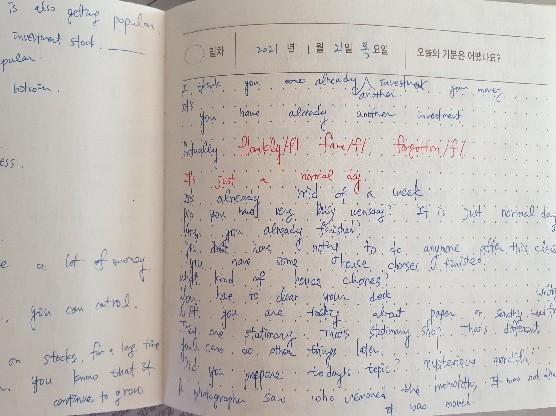 is also getting popular.
investment stock.
pular.
bitcoin.
ess.
e a lot of money
you can control.
on stocks, for a long time
you know that it
continue to grow
일차 2021 년 1 월 21 일 목 요일 오늘의 기분은 어땠나요?
I think you are already investment your money
another
you have already another investment
Actually frankly/f1 fane/f1 forgotten/f1
It's just a normal day
It's already mid of a week
Do you have very busy wensday? It is just normal day
you already finished?
You don't have nothing to do anymore after this class
You have some house chores I finished.
what kind of house chores?
You have to clear your desk
If you are talking about paper or sending
They are stationary. That's stationary shop. that's different
You can do other things later.
Did you prepare today's topic? mysterious monolith.
A photographer saw who removed the monoliths, It was not
it was moved.